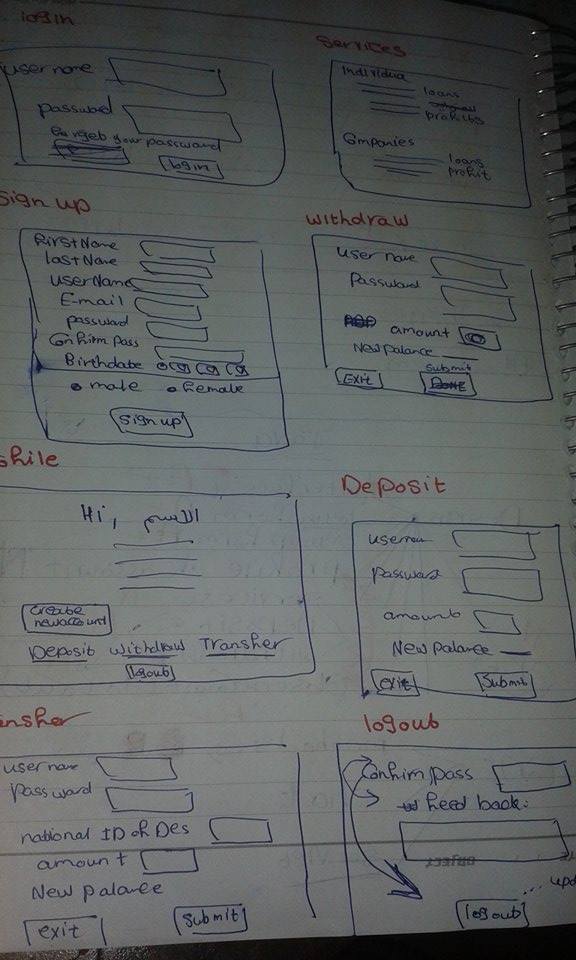 login
username
password
forget your password
login
Services
Individua
loans
profits
Companies
loans
profit
Sign up
First Name
last Name
userName
E-mail
password
Confirm pass
Birthdate
male female
Sign up
withdraw
user name
Password
amount
New palance
submit
Exit Done
ofile
Hi, الاسم
create
new account
Deposit withdraw Transfer
logout
Deposit
username
Password
amount
New palance
exit Submit
ansfer
username
Password
national ID of Des
amount
New palance
exit submit
logout
Confirm pass
feed back:
logout